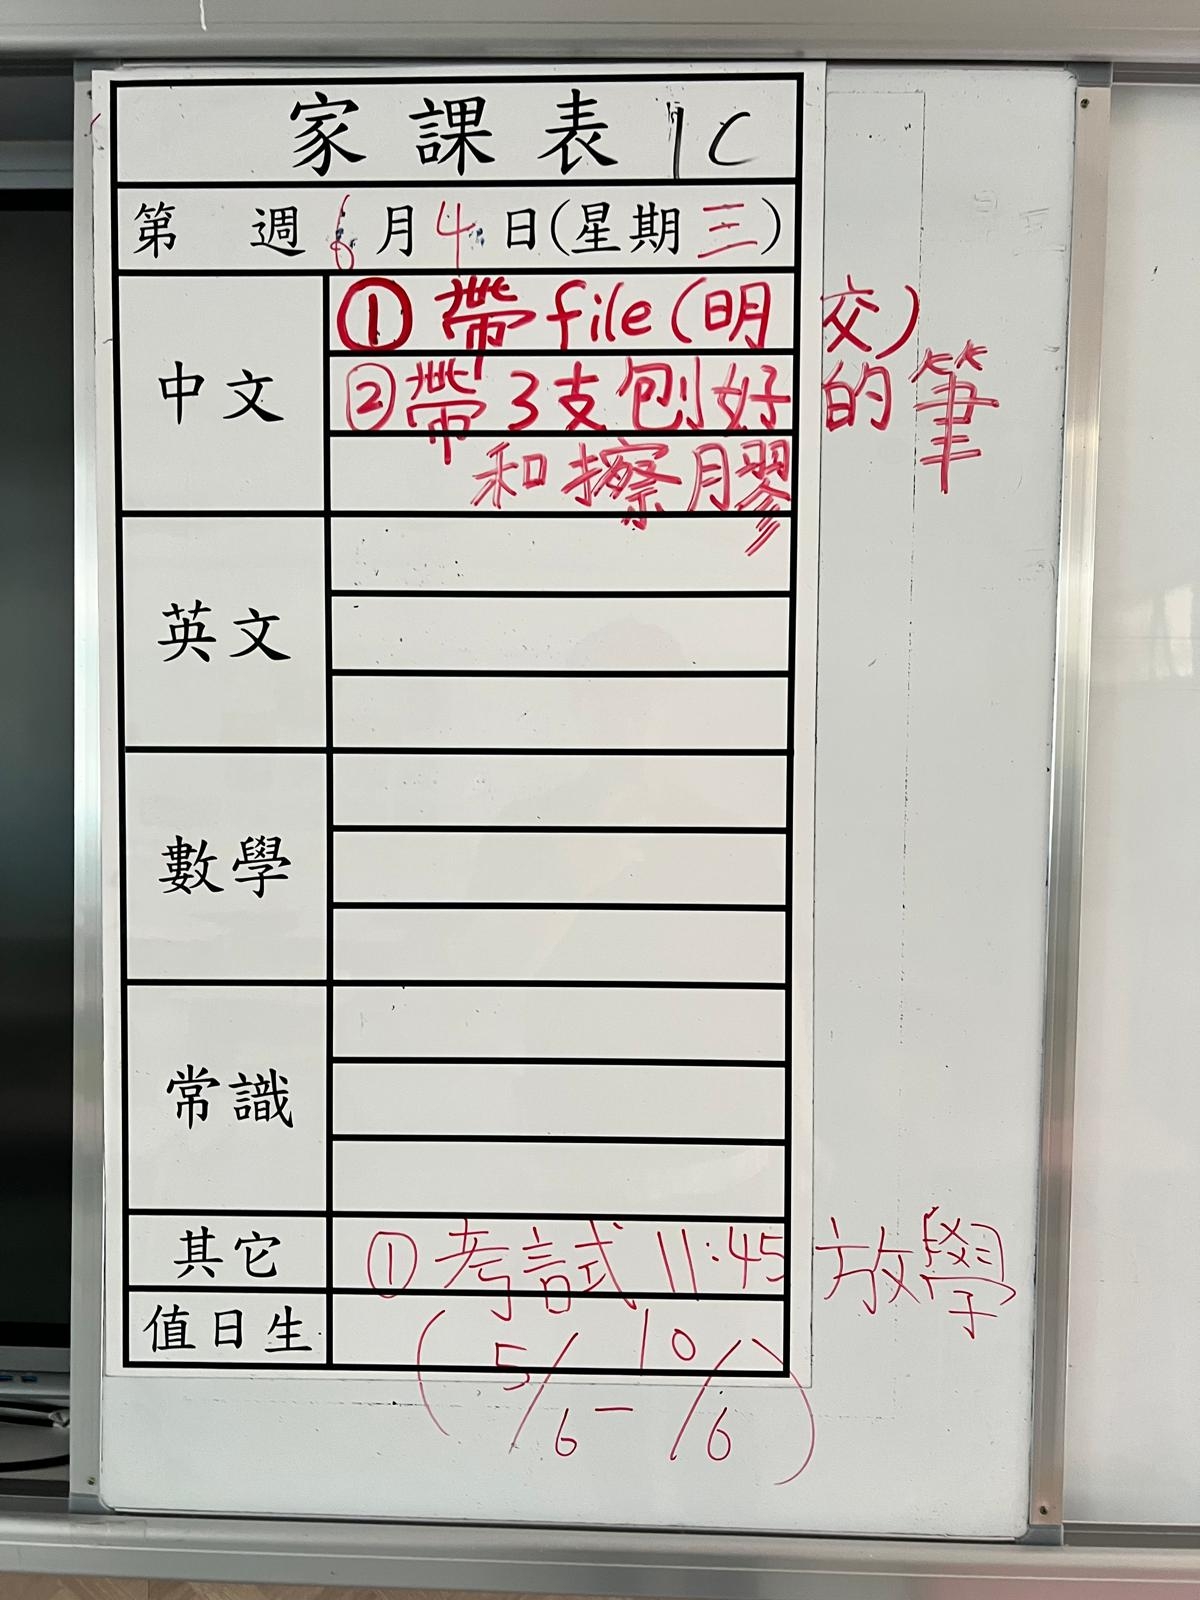 家課表 1C
第 週 6月4日(星期三)
中文
① 帶file(明交)
②帶3支刨好的筆
和擦膠
英文
數學
常識
其它
① 考試 11:45 放學
值日生
(5/6-10/6)